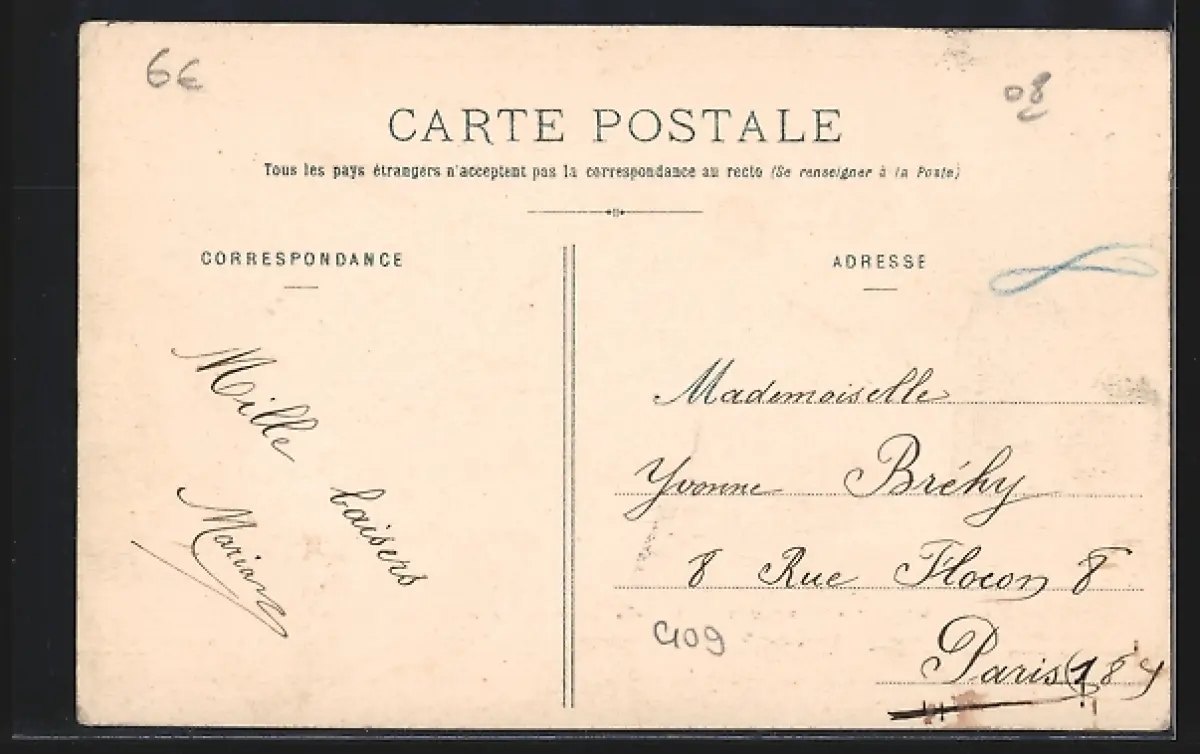 6€
08
CARTE POSTALE
Tous les pays étrangers n'acceptent pas la correspondance au recto (Se renseigner à la Poste)
CORRESPONDANCE
Mille
baisers
ADRESSE
Mademoiselle
Yvonne Bréhy
8 Rue Flocon 8
Paris (18